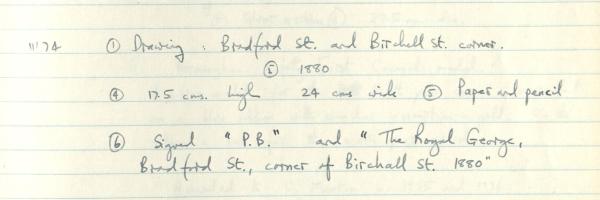 11'74 ① Drawing : Bradford St. and Birchall St. corner.
② 1880
④ 17.5 cms. high 24 cms wide ⑤ Paper and pencil
⑥ Signed "P.B." and "The Royal George,
Bradford St., corner of Birchall St. 1880"